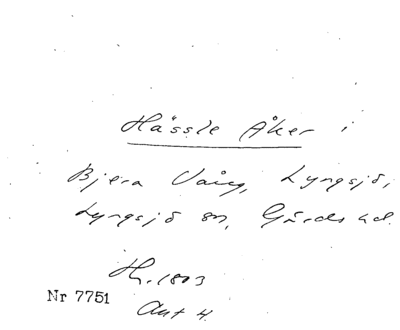 Hässle Åker i
Bjera Vång, Lyngsjö,
Lyngsjö sn, Gärds hd.
Hs. 1803
Nr 7751
Akt 4.